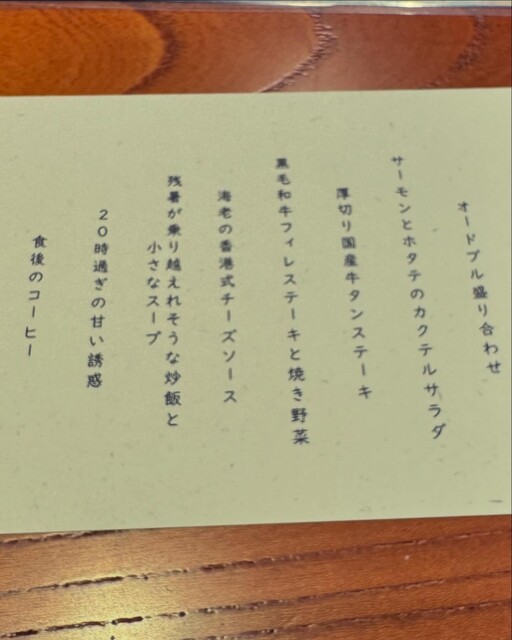 オードブル盛り合わせ
サーモンとホタテのカクテルサラダ
厚切り国産牛タンステーキ
黒毛和牛フィレステーキと焼き野菜
海老の香港式チーズソース
残暑が乗り越えれそうな炒飯と
小さなスープ
20時過ぎの甘い誘惑
食後のコーヒー